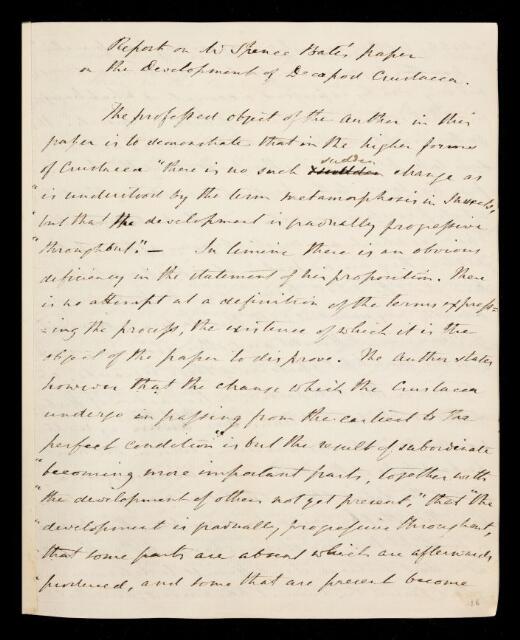 Report on Mr Spence Bate's paper
on the Development of Decapod Crustacea.
The professed object of the Author in this
paper is to demonstrate that in the higher forms
of Crustacea "there is no such sudden change as
"is understood by the term metamorphosis in Insects,
"but that the development is gradually progressive
"throughout". — In limine there is an obvious
deficiency in the statement of his proposition. There
is no attempt at a definition of the terms express=
=ing the process, the existence of which it is the
object of the paper to disprove. The Author states
however that the change which the Crustacea
undergo in passing from the earliest to the
perfect condition "is but the result of subordinate
"becoming more important parts, together with
"the development of others not yet present," that "the
"development is gradually progressive throughout,
"that some parts are absent which are afterwards
"produced, and some that are present become
16